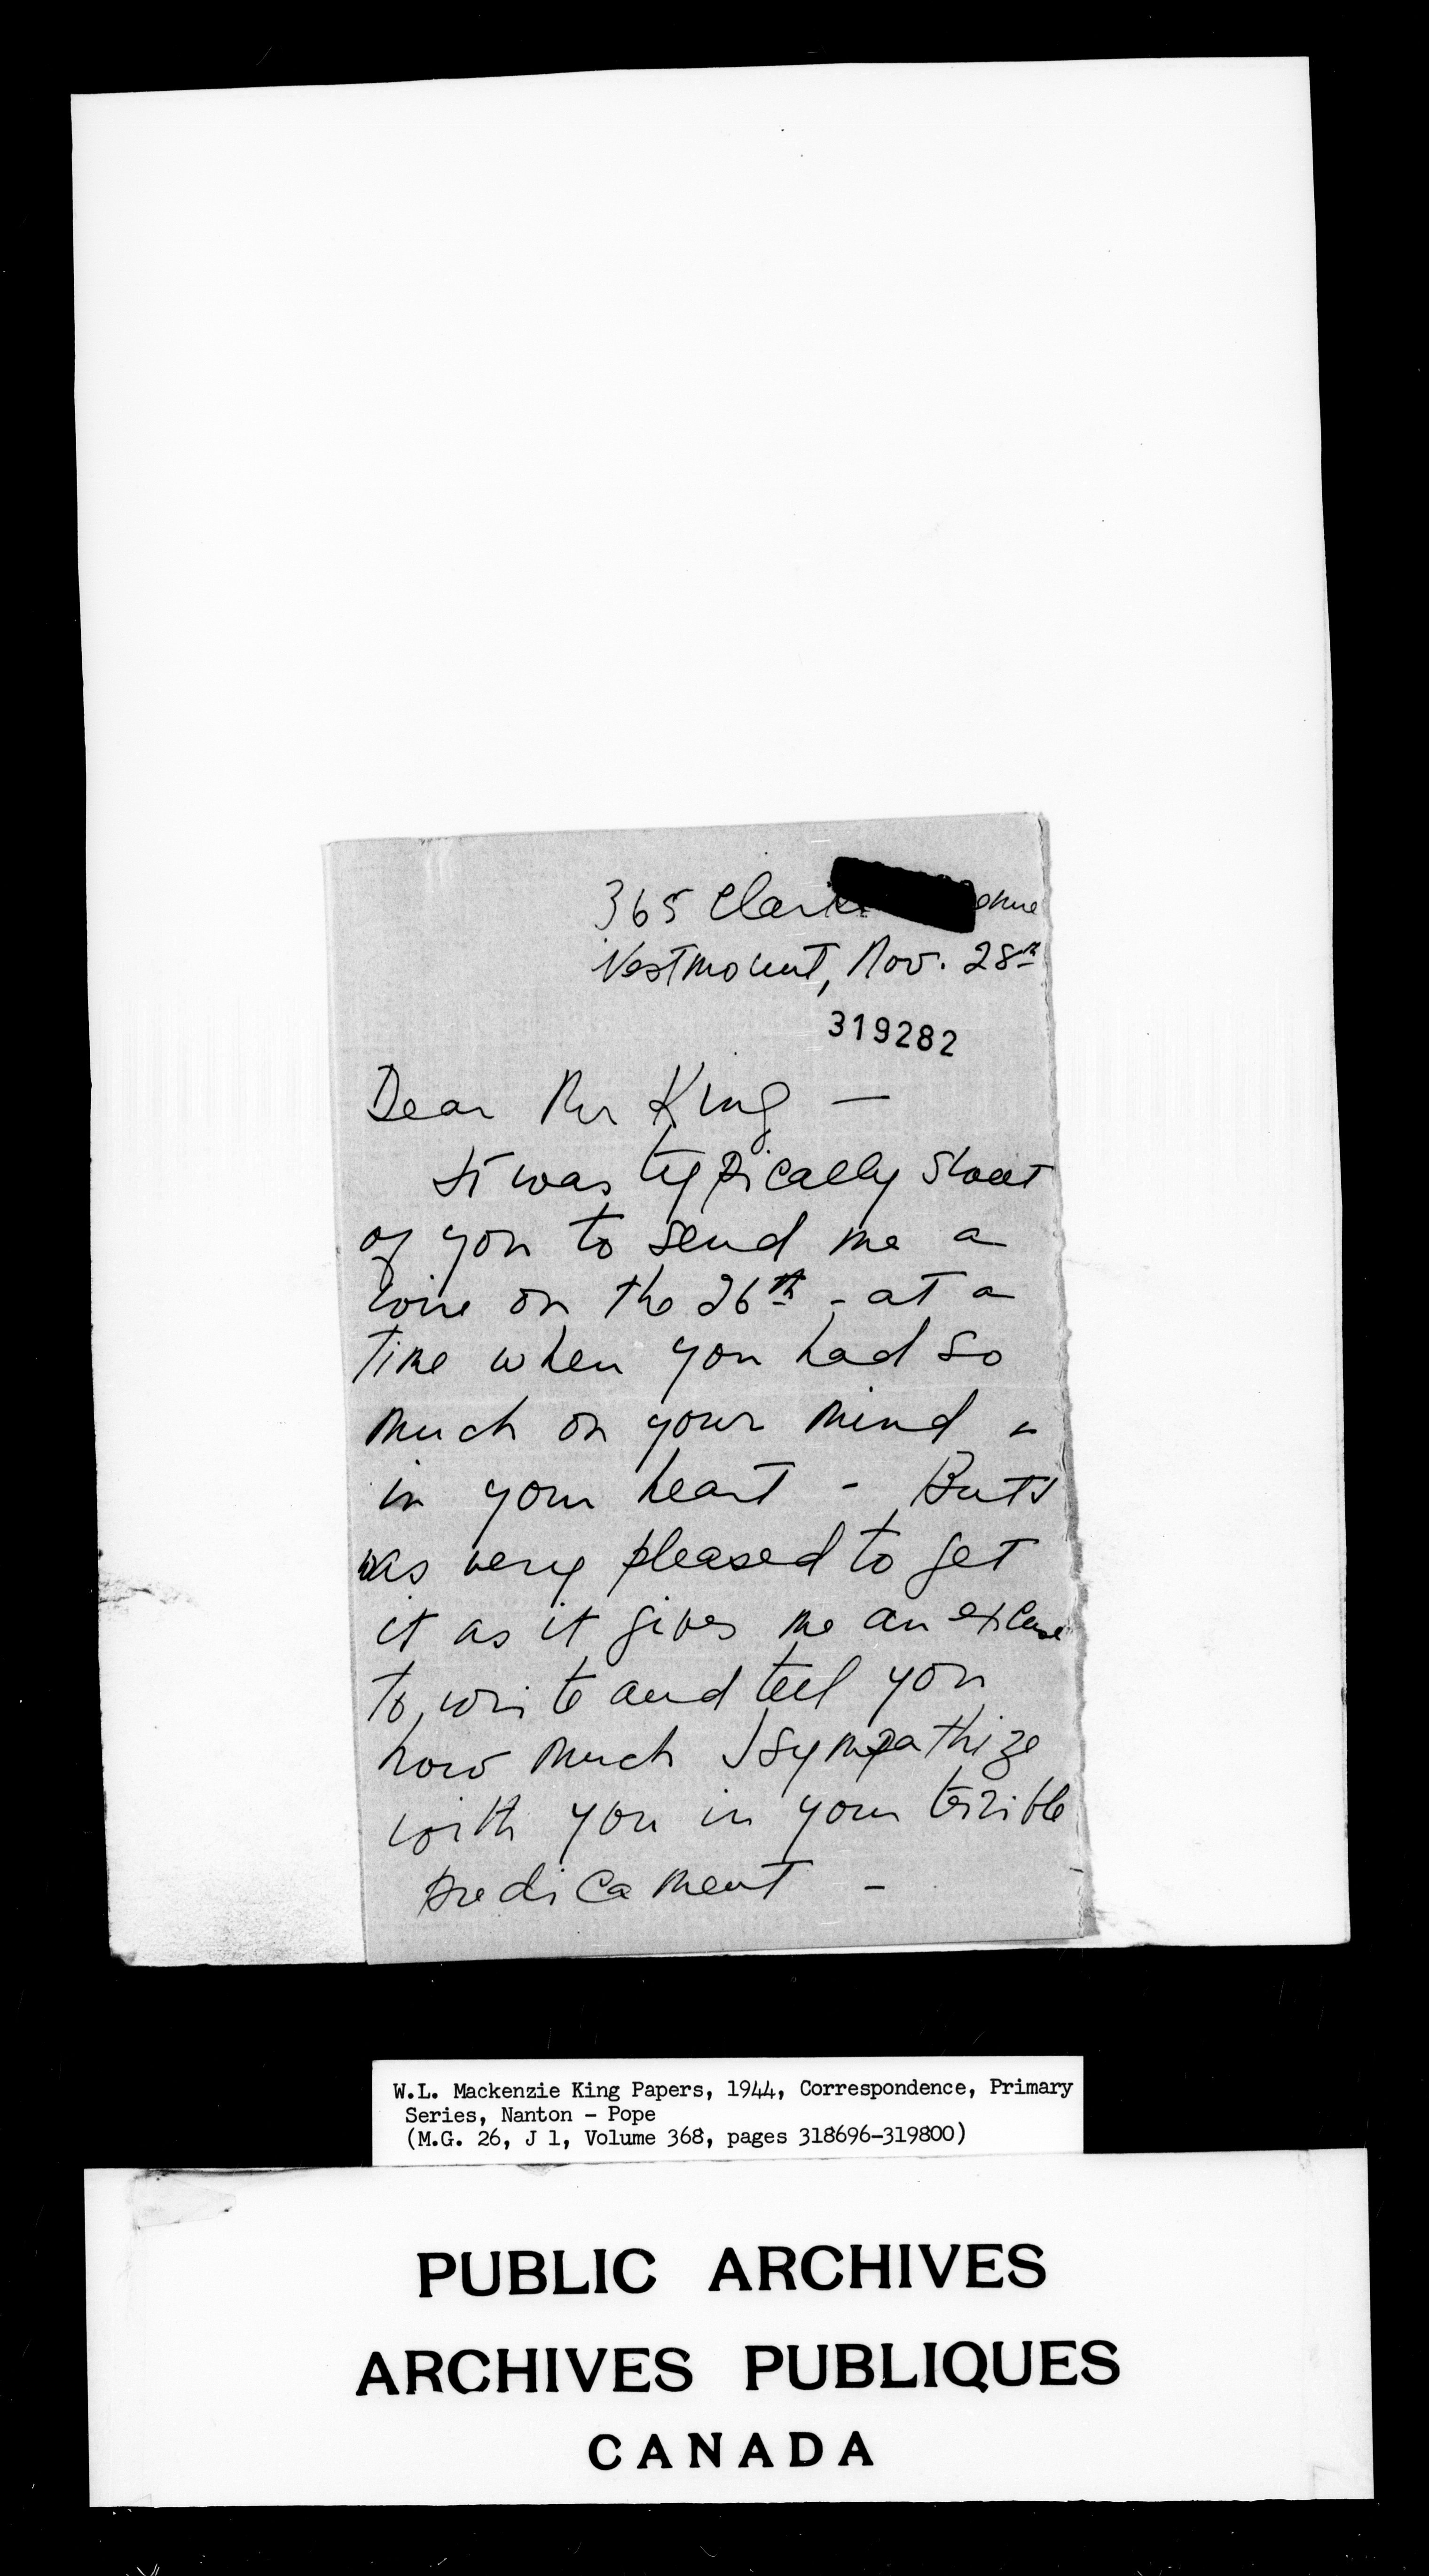 365 Clarke enue
Westmount, Nov. 28th
319282
Dear Mr King —
It was typically sweet
of you to send me a
wire on the 26th - at a
time when you had so
much on your mind &
in your heart - But I
was very pleased to get
it as it gives me an excuse
to write and tell you
how much I sympathize
with you in your terrible
predicament -
W.L. Mackenzie King Papers, 1944, Correspondence, Primary
Series, Nanton - Pope
(M.G. 26, J 1, Volume 368, pages 318696-319800)
PUBLIC ARCHIVES
ARCHIVES PUBLIQUES
CANADA